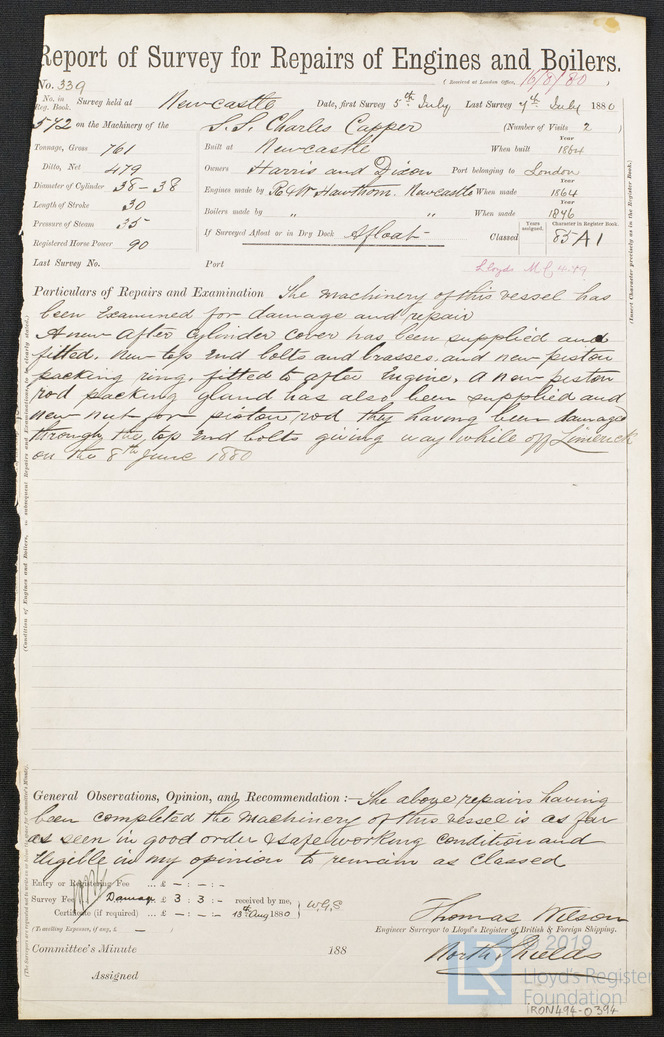 Report of Survey for Repairs of Engines and Boilers.
No. 339 (Received at London Office, 16/8/80)
No. in Reg. Book. Survey held at Newcastle Date, first Survey 5th July Last Survey 7th July 1880
572 on the Machinery of the S.S. Charles Capper (Number of Visits 2)
Tonnage, Gross 761 Built at Newcastle When built Year 1864
Ditto, Net 479 Owners Harris and Dixon Port belonging to London
Diameter of Cylinder 38-38 Engines made by R & W Hawthorn. Newcastle When made Year 1864
Length of Stroke 30 Boilers made by " " When made Year 1876
Pressure of Steam 35 If Surveyed Afloat or in Dry Dock Afloat Classed Years assigned. Character in Register Book. 85 A1
Registered Horse Power 90
Last Survey No. Port Lloyds M.C. 4.79
Particulars of Repairs and Examination The machinery of this vessel has
been Examined for damage and repair
A new after Cylinder cover has been supplied and
fitted. New top end bolts and brasses and new piston
packing ring, fitted to after Engine. A new piston
rod packing gland has also been supplied and
new nut for piston rod they having been damaged
through the top end bolts giving way while off Limerick
on the 8th June 1880
General Observations, Opinion, and Recommendation :— The above repairs having
been completed the machinery of this vessel is as far
as seen in good order & safe working condition and
Eligible in my opinion to remain as classed
Entry or Registering Fee ... £ – : – : –
Survey Fee Damage £ 3 : 3 : – received by me, W.G.S
Certificate (if required) ... £ – : – : – 13th Aug 1880
(Travelling Expenses, if any, £ – )
Thomas Wilson
Engineer Surveyor to Lloyd's Register of British & Foreign Shipping.
Committee's Minute 188 North Shields
Assigned
(Insert Character precisely as in the Register Book.)
LR © 2019
Lloyd's Register
Foundation
IRON494-0394